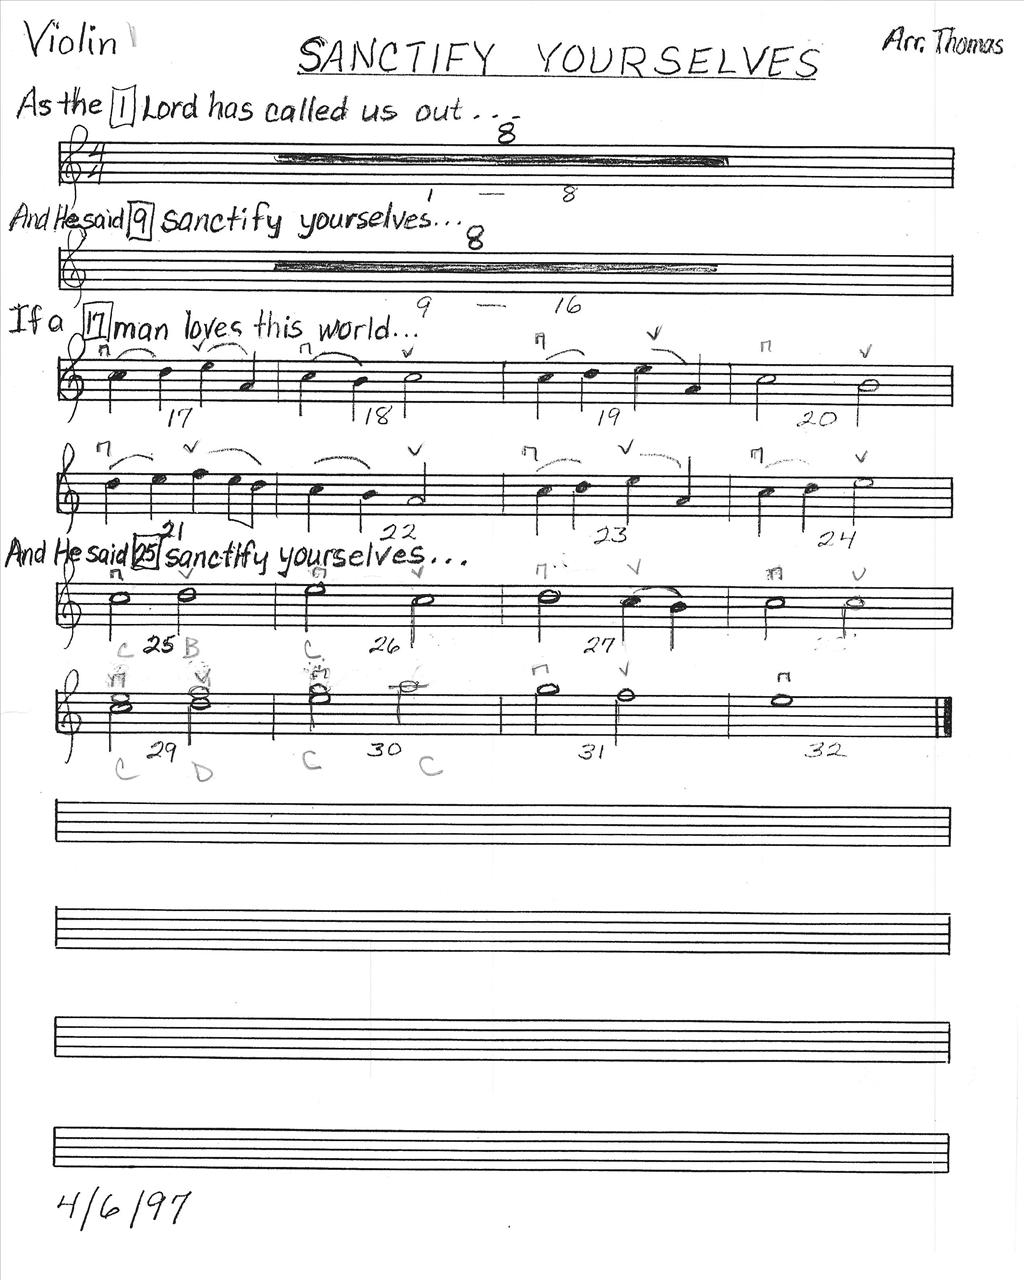 Violin 1
SANCTIFY YOURSELVES
Arr. Thomas
As the 1 Lord has called us out...
8
4/4
1 — 8
And He said 9 sanctify yourselves...
8
9 — 16
If a 17 man loves this world...
17 18 19 20
21 22 23 24
And He said 25 sanctify yourselves...
C 25 B C 26 27
29 30 31 32
C D C C
4/6/97